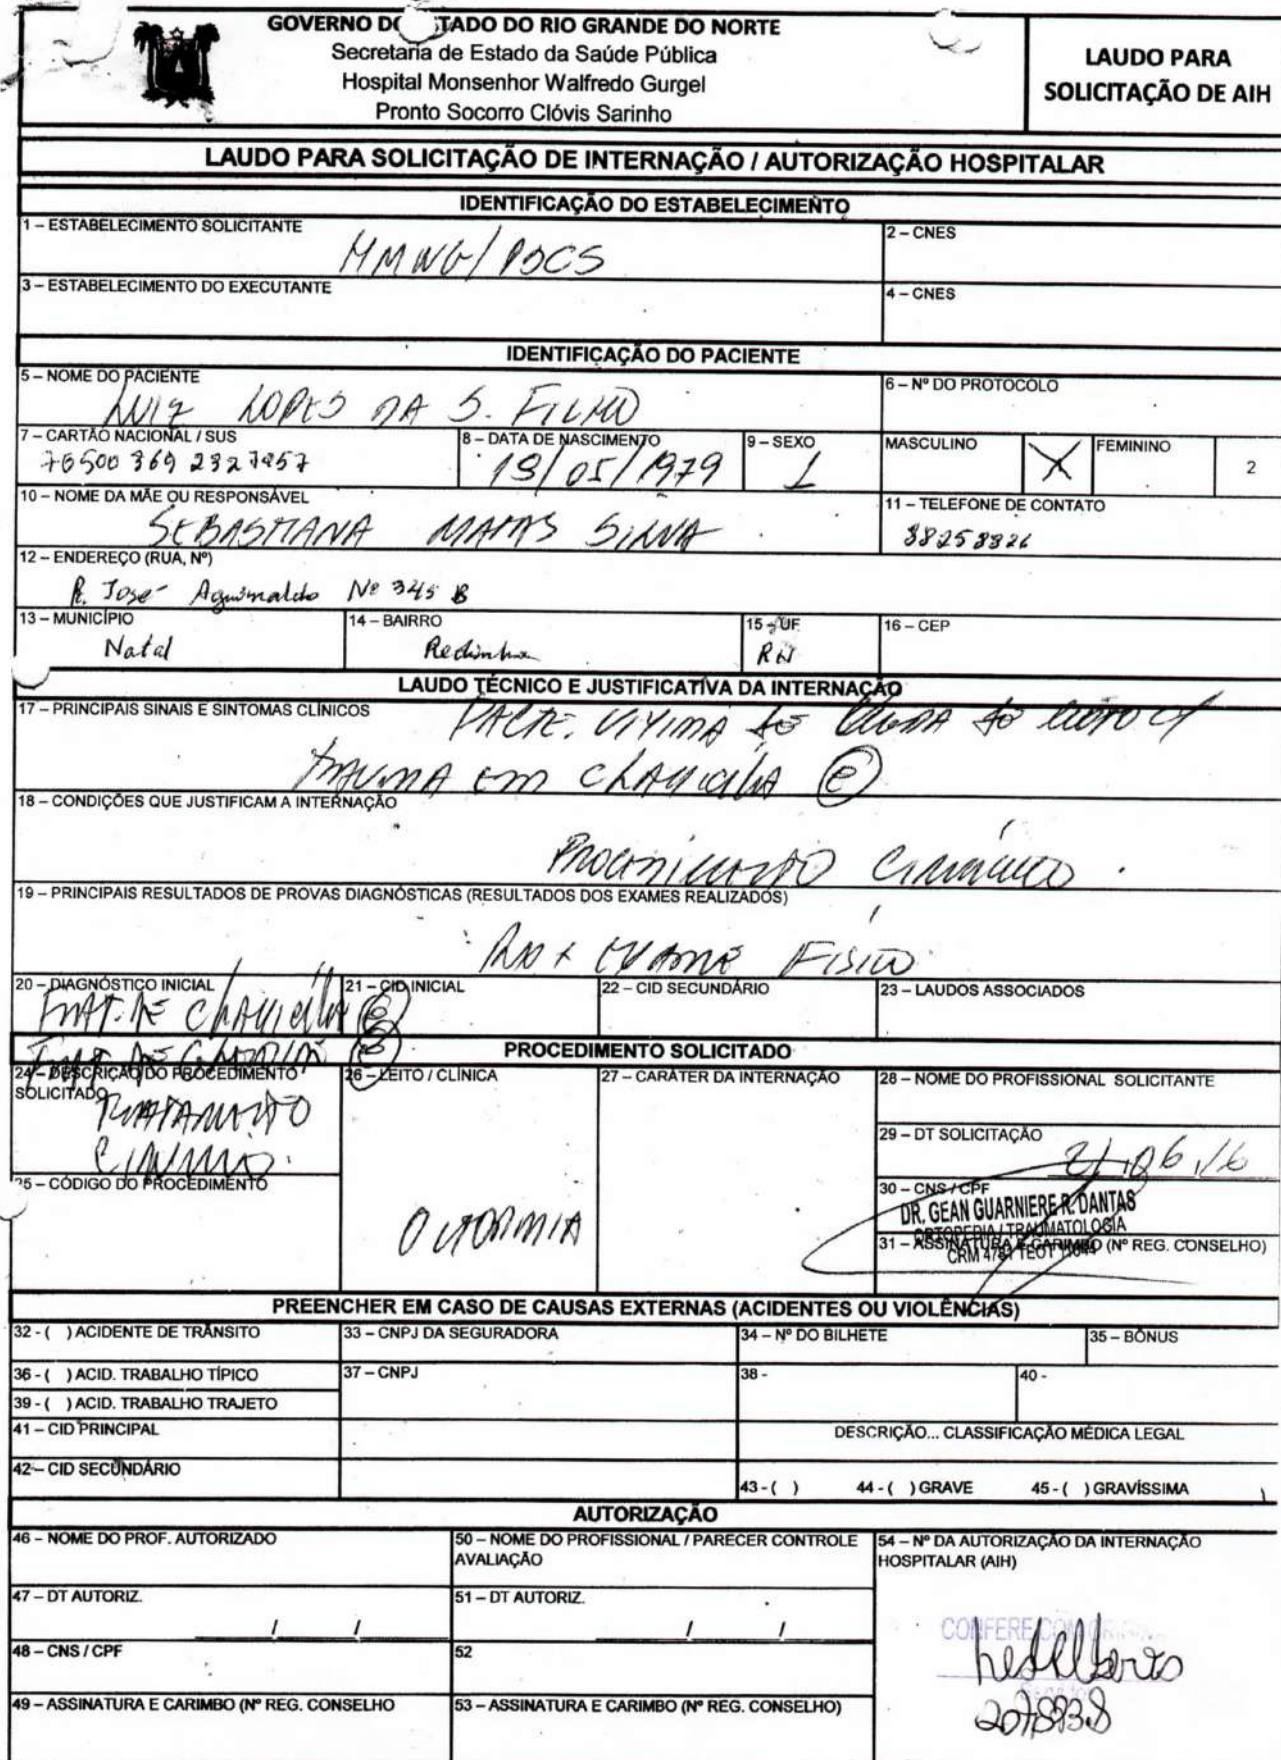 GOVERNO DO STADO DO RIO GRANDE DO NORTE
Secretaria de Estado da Saúde Pública
Hospital Monsenhor Walfredo Gurgel
Pronto Socorro Clóvis Sarinho
LAUDO PARA
SOLICITAÇÃO DE AIH
LAUDO PARA SOLICITAÇÃO DE INTERNAÇÃO / AUTORIZAÇÃO HOSPITALAR
IDENTIFICAÇÃO DO ESTABELECIMENTO
1 – ESTABELECIMENTO SOLICITANTE
HMWG/PSCS
2 – CNES
3 – ESTABELECIMENTO DO EXECUTANTE
4 – CNES
IDENTIFICAÇÃO DO PACIENTE
5 – NOME DO PACIENTE
LUIZ LOPES DA S. FILHO
6 – Nº DO PROTOCOLO
7 – CARTÃO NACIONAL / SUS
8 – DATA DE NASCIMENTO
9 – SEXO
1
MASCULINO
X
FEMININO
2
10 – NOME DA MÃE OU RESPONSÁVEL
SEBASTIANA MATIAS SILVA
11 – TELEFONE DE CONTATO
12 – ENDEREÇO (RUA, Nº)
R. José Aguinaldo Nº 345 B
13 – MUNICÍPIO
Natal
14 – BAIRRO
Redinha
15 – UF
RN
16 – CEP
LAUDO TÉCNICO E JUSTIFICATIVA DA INTERNAÇÃO
17 – PRINCIPAIS SINAIS E SINTOMAS CLÍNICOS
PACTE. VITIMA DE QUEDA DE MOTO C/
TRAUMA EM CLAVICULA (E)
18 – CONDIÇÕES QUE JUSTIFICAM A INTERNAÇÃO
PROCEDIMENTO CIRURGICO.
19 – PRINCIPAIS RESULTADOS DE PROVAS DIAGNÓSTICAS (RESULTADOS DOS EXAMES REALIZADOS)
EXAME FISICO
20 – DIAGNÓSTICO INICIAL
FRAT. DE CLAVICULA (E)
21 – CID INICIAL
22 – CID SECUNDÁRIO
23 – LAUDOS ASSOCIADOS
PROCEDIMENTO SOLICITADO
24 – DESCRIÇÃO DO PROCEDIMENTO
SOLICITADO
TRATAMENTO
CIRURGICO.
25 – CÓDIGO DO PROCEDIMENTO
26 – LEITO / CLÍNICA
ORTOPEDIA
27 – CARÁTER DA INTERNAÇÃO
28 – NOME DO PROFISSIONAL SOLICITANTE
29 – DT SOLICITAÇÃO
21.06.16
30 – CNS / CPF
DR. GEAN GUARNIERE R. DANTAS
ORTOPEDIA / TRAUMATOLOGIA
31 – ASSINATURA E CARIMBO (Nº REG. CONSELHO)
CRM 4781 TEOT
PREENCHER EM CASO DE CAUSAS EXTERNAS (ACIDENTES OU VIOLÊNCIAS)
32 - ( ) ACIDENTE DE TRÂNSITO
33 – CNPJ DA SEGURADORA
34 – Nº DO BILHETE
35 – BÔNUS
36 - ( ) ACID. TRABALHO TÍPICO
37 – CNPJ
38 -
40 -
39 - ( ) ACID. TRABALHO TRAJETO
41 – CID PRINCIPAL
DESCRIÇÃO... CLASSIFICAÇÃO MÉDICA LEGAL
42 – CID SECUNDÁRIO
43 - ( ) 44 - ( ) GRAVE 45 - ( ) GRAVÍSSIMA
AUTORIZAÇÃO
46 – NOME DO PROF. AUTORIZADO
50 – NOME DO PROFISSIONAL / PARECER CONTROLE
AVALIAÇÃO
54 – Nº DA AUTORIZAÇÃO DA INTERNAÇÃO
HOSPITALAR (AIH)
47 – DT AUTORIZ.
/ /
51 – DT AUTORIZ.
/ /
48 – CNS / CPF
52
CONFERE COM O
49 – ASSINATURA E CARIMBO (Nº REG. CONSELHO
53 – ASSINATURA E CARIMBO (Nº REG. CONSELHO)